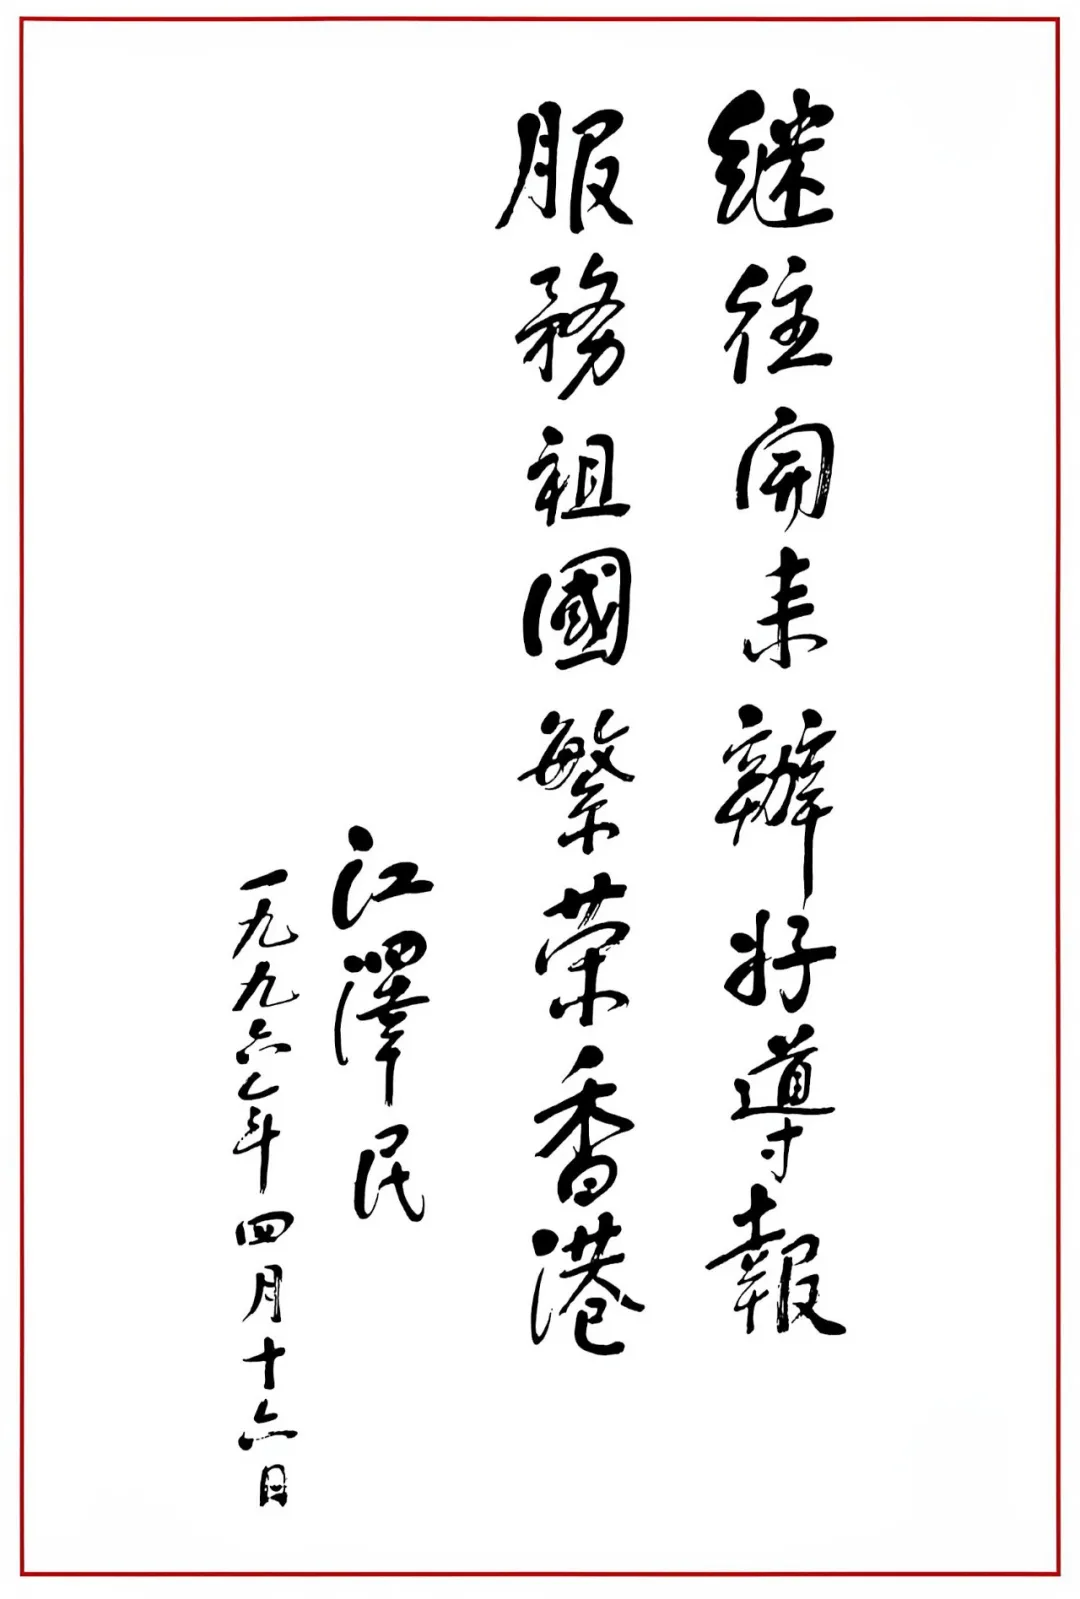 继往开来辦好導報
服務祖國繁荣香港
江澤民
一九九六年四月十六日